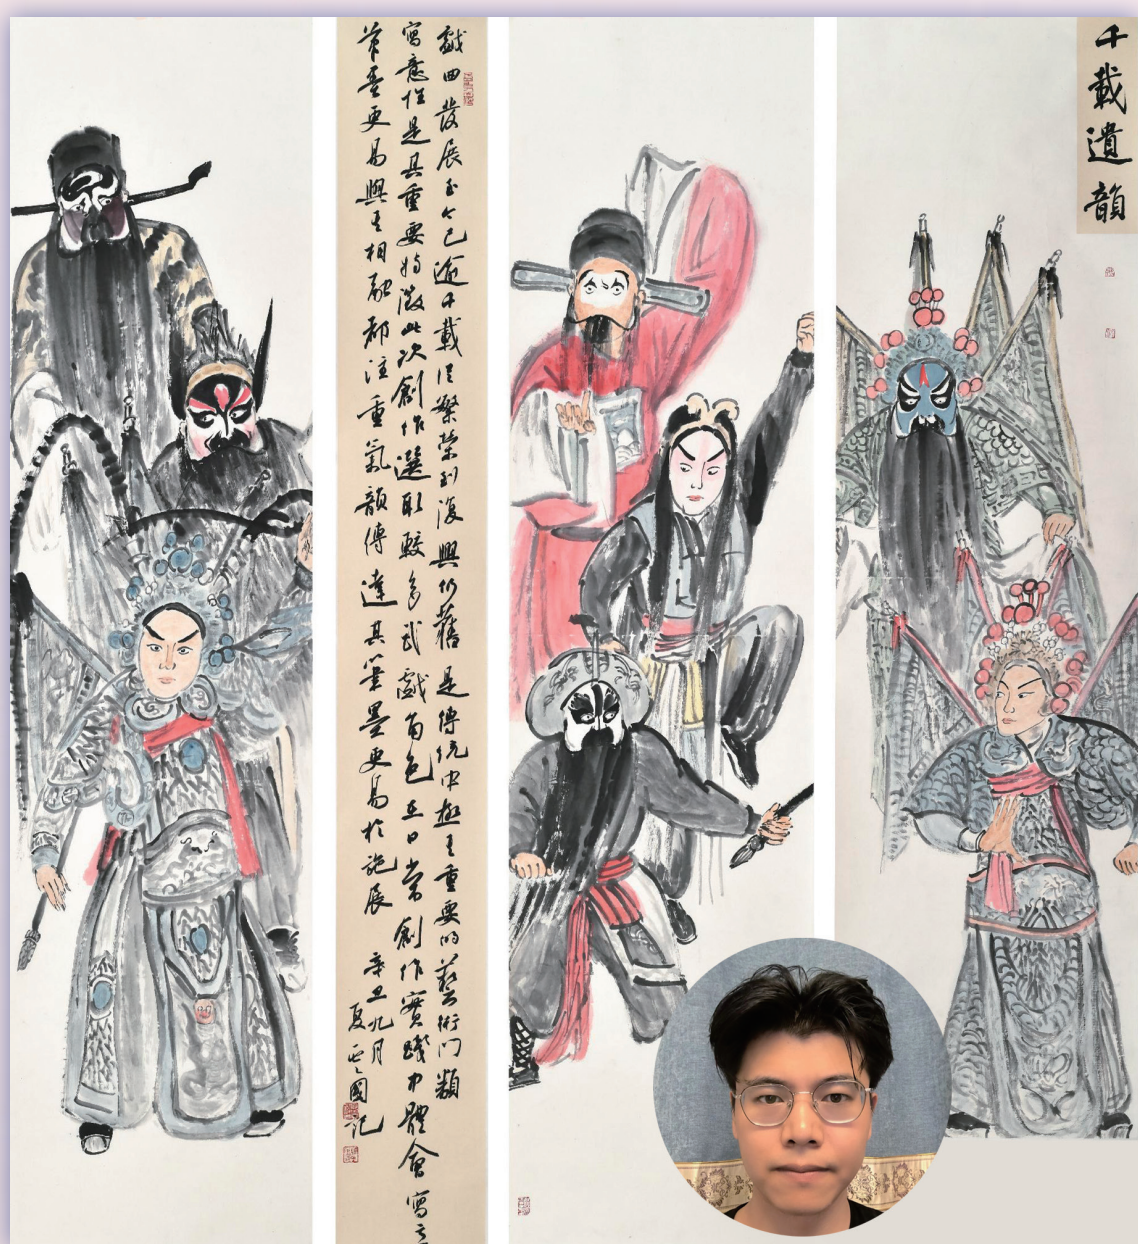 千載遺韻
戲曲發展至今已逾千載從繁榮到復興仍舊是傳統中極其重要的藝術門類
寫意性是其重要特徵此次創作選取較多武戲角色在日常創作實踐中體會寫意
筆墨更易與其相融都注重氣韻傳達其筆墨更易於施展 辛丑九月
夏國記